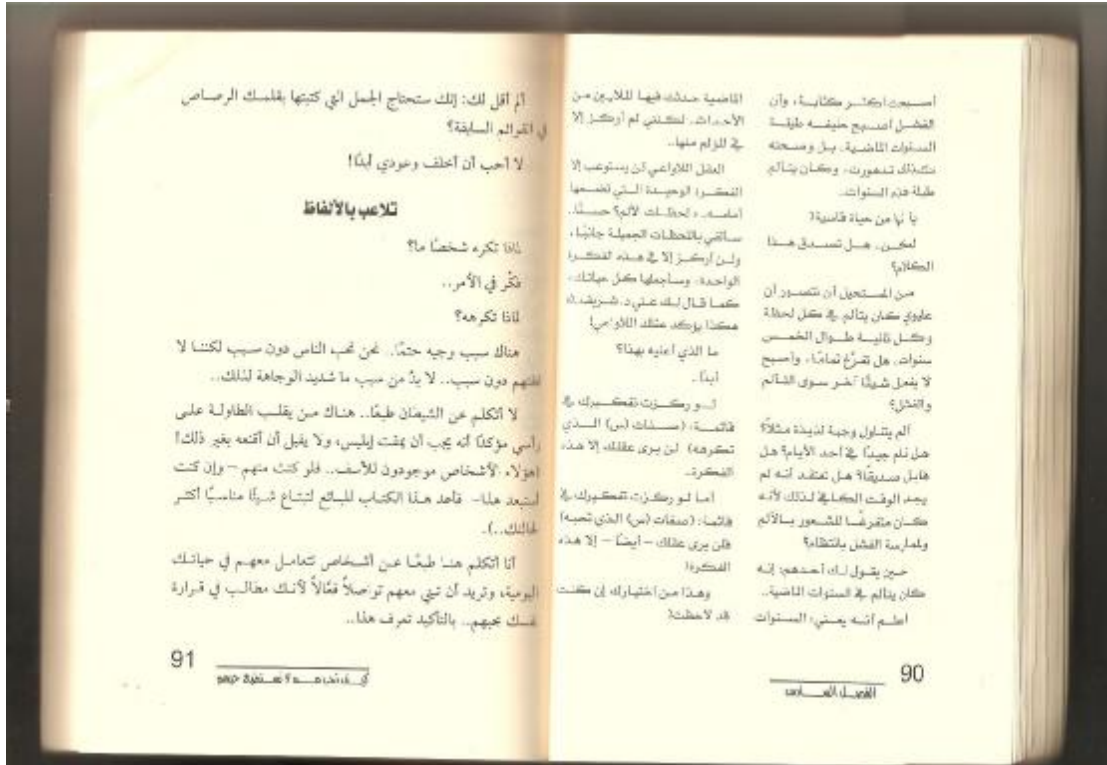 أصبحت أكثر كآبة، وأن
الفشل أصبح حليفه طيلة
السنوات الماضية، بل وصحته
كذلك تدهورت، وكان يتألم
طيلة هذه السنوات..
يا لها من حياة قاسية!
لكن، هل تصدق هذا
الكلام؟
من المستحيل أن نتصور أن
كان يتألم في كل لحظة
وكل ثانية طوال الخمس
سنوات، هل تفرغ تمامًا، وأصبح
لا يفعل شيئًا آخر سوى التألم
والفشل؟
ألم يتناول وجبة لذيذة مثلاً؟
هل نام جيدًا في أحد الأيام؟ هل
قابل صديقًا؟ هل تعتقد أنه لم
يجد الوقت الكافي لذلك لأنه
كان متفرغًا للشعور بالألم
ولممارسة الفشل بانتظام؟
حين يقول لك أحدهم: إنه
كان يتألم في السنوات الماضية..
اعلم أنه يعني: السنوات
الماضية حدثت فيها الملايين من
الأحداث، لكنني لم أركز إلا
في المؤلم منها..
العقل اللاواعي لن يستوعب إلا
الفكرة الوحيدة التي تضعها
أمامه.. لحظات ألم؟ حسنًا..
سألقي باللحظات الجميلة جانبًا،
ولن أركز إلا في هذه الفكرة
الواحدة، وسأجعلها كل حياتك،
كما قال لك عني د. شريف
هكذا يؤكد عقلك اللاواعي!
ما الذي أعنيه بهذا؟
أبدًا..
لو ركزت تفكيرك في
قائمة: (صفات (س) الذي
تكرهه) لن يرى عقلك إلا هذه
الفكرة..
أما لو ركزت تفكيرك في
قائمة: (صفات (س) الذي تحبه)
فلن يرى عقلك – أيضًا – إلا هذه
الفكرة!
وهذا من اختيارك إن كنت
قد لاحظت!
90
الفصل السادس
ألم أقل لك: إنك ستحتاج الجمل التي كتبتها بقلمك الرصاص
في القوائم السابقة؟
لا أحب أن أخلف وعودي أبدًا!
تلاعب بالألفاظ
لماذا تكره شخصًا ما؟
فكّر في الأمر..
لماذا تكرهه؟
هناك سبب وجيه حتمًا.. نحن نحب الناس دون سبب لكننا لا
نمقتهم دون سبب.. لا بدّ من سبب ما شديد الوجاهة لذلك..
لا أتكلم عن الشيطان طبعًا.. هناك من يقلب الطاولة على
رأسي مؤكدًا أنه يجب أن يمقت إبليس، ولا يقبل أن أقنعه بغير ذلك!
(هؤلاء الأشخاص موجودون للأسف.. فلو كنت منهم – وإن كنت
أستبعد هذا – فأعد هذا الكتاب للبائع لتبتاع شيئًا مناسبًا أكثر
لحالتك..).
أنا أتكلم هنا طبعًا عن أشخاص تتعامل معهم في حياتك
اليومية، وتريد أن تبني معهم تواصلاً فعّالاً لأنك مطالب في قرارة
نفسك بحبهم.. بالتأكيد تعرف هذا..
91